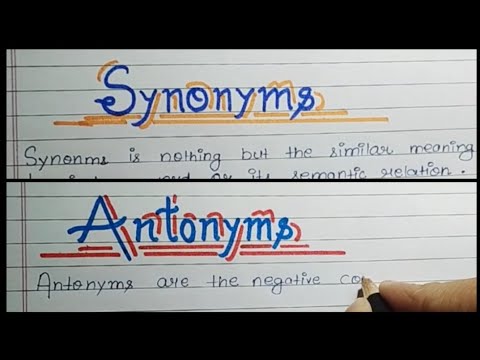 Synonyms
Synonms is nothing but the similar meaning
or its semantic relation.
Antonyms
Antonyms are the negative co